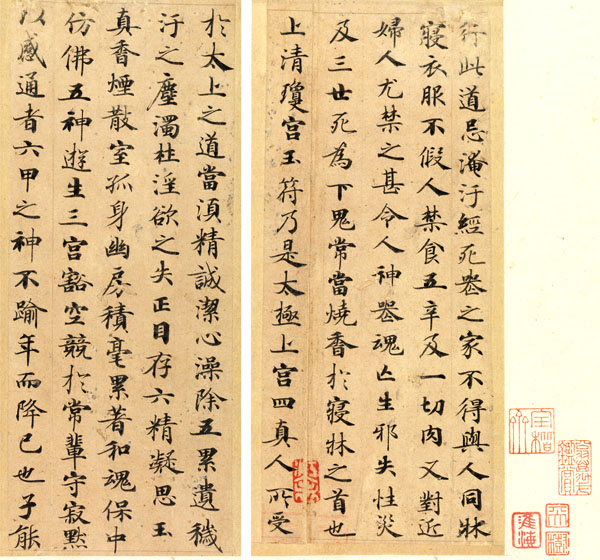 行此道忌淹汙經死喪之家不得與人同牀
寢衣服不假人禁食五辛及一切肉又對近
婦人尤禁之甚令人神喪魂亡生邪失性災
及三世死為下鬼常當燒香於寢牀之首也
上清瓊宮玉符乃是太極上宮四真人所受
於太上之道當須精誠潔心澡除五累遺穢
汙之塵濁杜淫欲之失正目存六精凝思玉
真香煙散室孤身幽房積毫累著和魂保中
仿佛五神遊生三宮豁空競於常輩守寂默
以感通者六甲之神不踰年而降己也子能